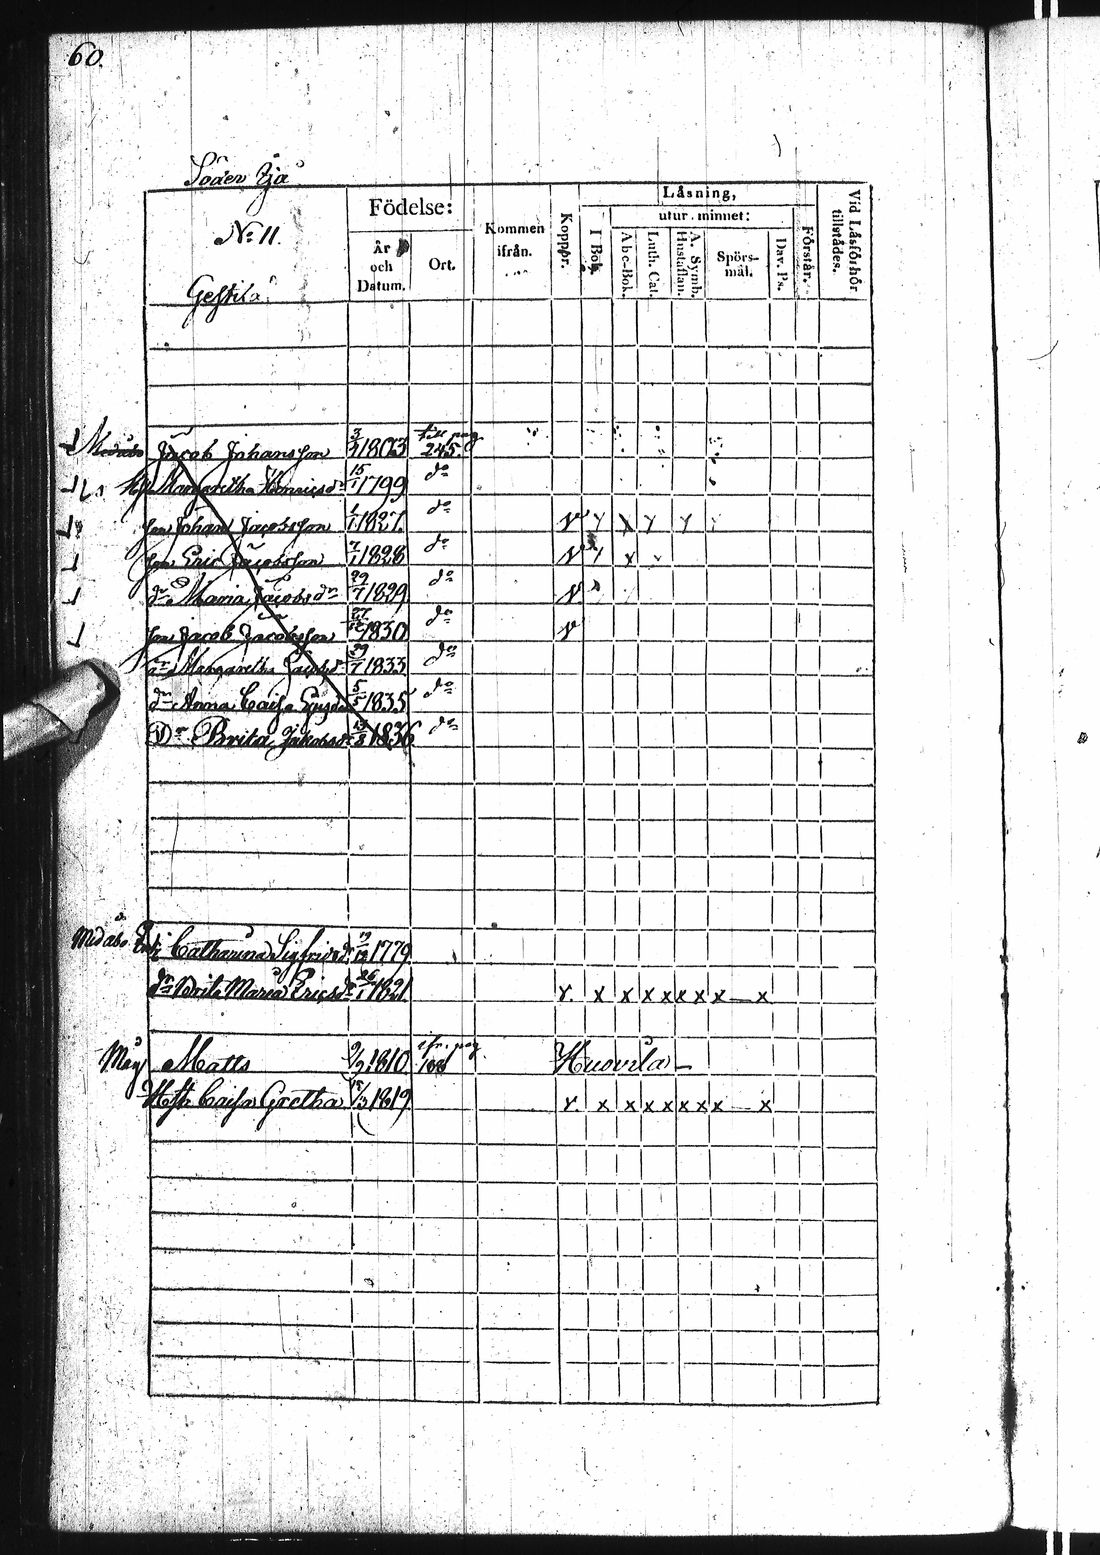 60.
Söder
No 11.
Födelse:
År och Datum.
Ort.
Kommen ifrån.
Koppor.
Läsning,
I Bok.
utur minnet:
Abc-Bok.
Luth. Cat.
A. Symb. Hustaflan.
Spörs-mål.
Dav. Ps.
Förstår.
Vid Läsförhör tillstädes.
Medåbo Jacob Johansson 3/ 1803 till pag 245.
Margaretha Henricsdr 15/1 1799 do
son Johan Jacobsson 1/1 1827. do v
son Eric Jacobsson 7/1 1828 do v x
dr Maria Jacobsdr 29/7 1829 do v
son Jacob Jacobsson 27/12 1830 do v
dr Margaretha Jacobsdr 29/7 1833 do
dr Anna Caisa 5/5 1835 do
Dr Brita Jakobsdr /8 1836 do
Med åbo Catharina Sigfridsdr 19/12 1779
dr Brita Maria Ericsdr 26/1 1821 v. x x x x x x x — x
Måg Matts 2/2 1810 ifr. pag. 108 Huovila —
Hst Caisa Gretha 1819 v. x x x x x x x — x